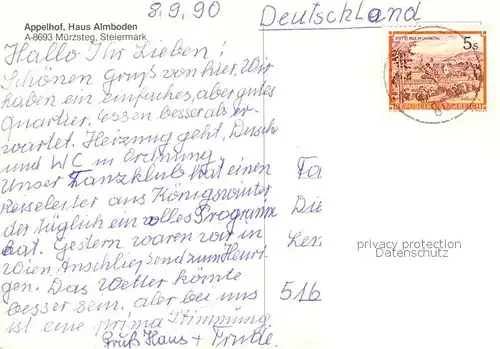 8.9.90
Deutschland
Appelhof, Haus Almboden
A-8693 Mürzsteg, Steiermark
Hallo Ihr Lieben!
Schönen Gruß von hier, Wir
haben ein einfaches, aber gutes
Quartier, Essen besser als er-
wartet. Heizung geht, Dusche
und WC in Ordnung.
Unser Tanzklub hat einen
Reiseleiter aus Königswinter
der täglich ein volles Programm
hat. Gestern waren wir in
Wien, Anschließend zum Heuri-
gen. Das Wetter könnte
besser sein, aber bei uns
ist eine prima Stimmung
Gruß Haus + Trude.
5s
STIFT ST. PAUL IM LAVANTTAL
REPUBLIK ÖSTERREICH
Fa
Die
516
privacy protection
Datenschutz